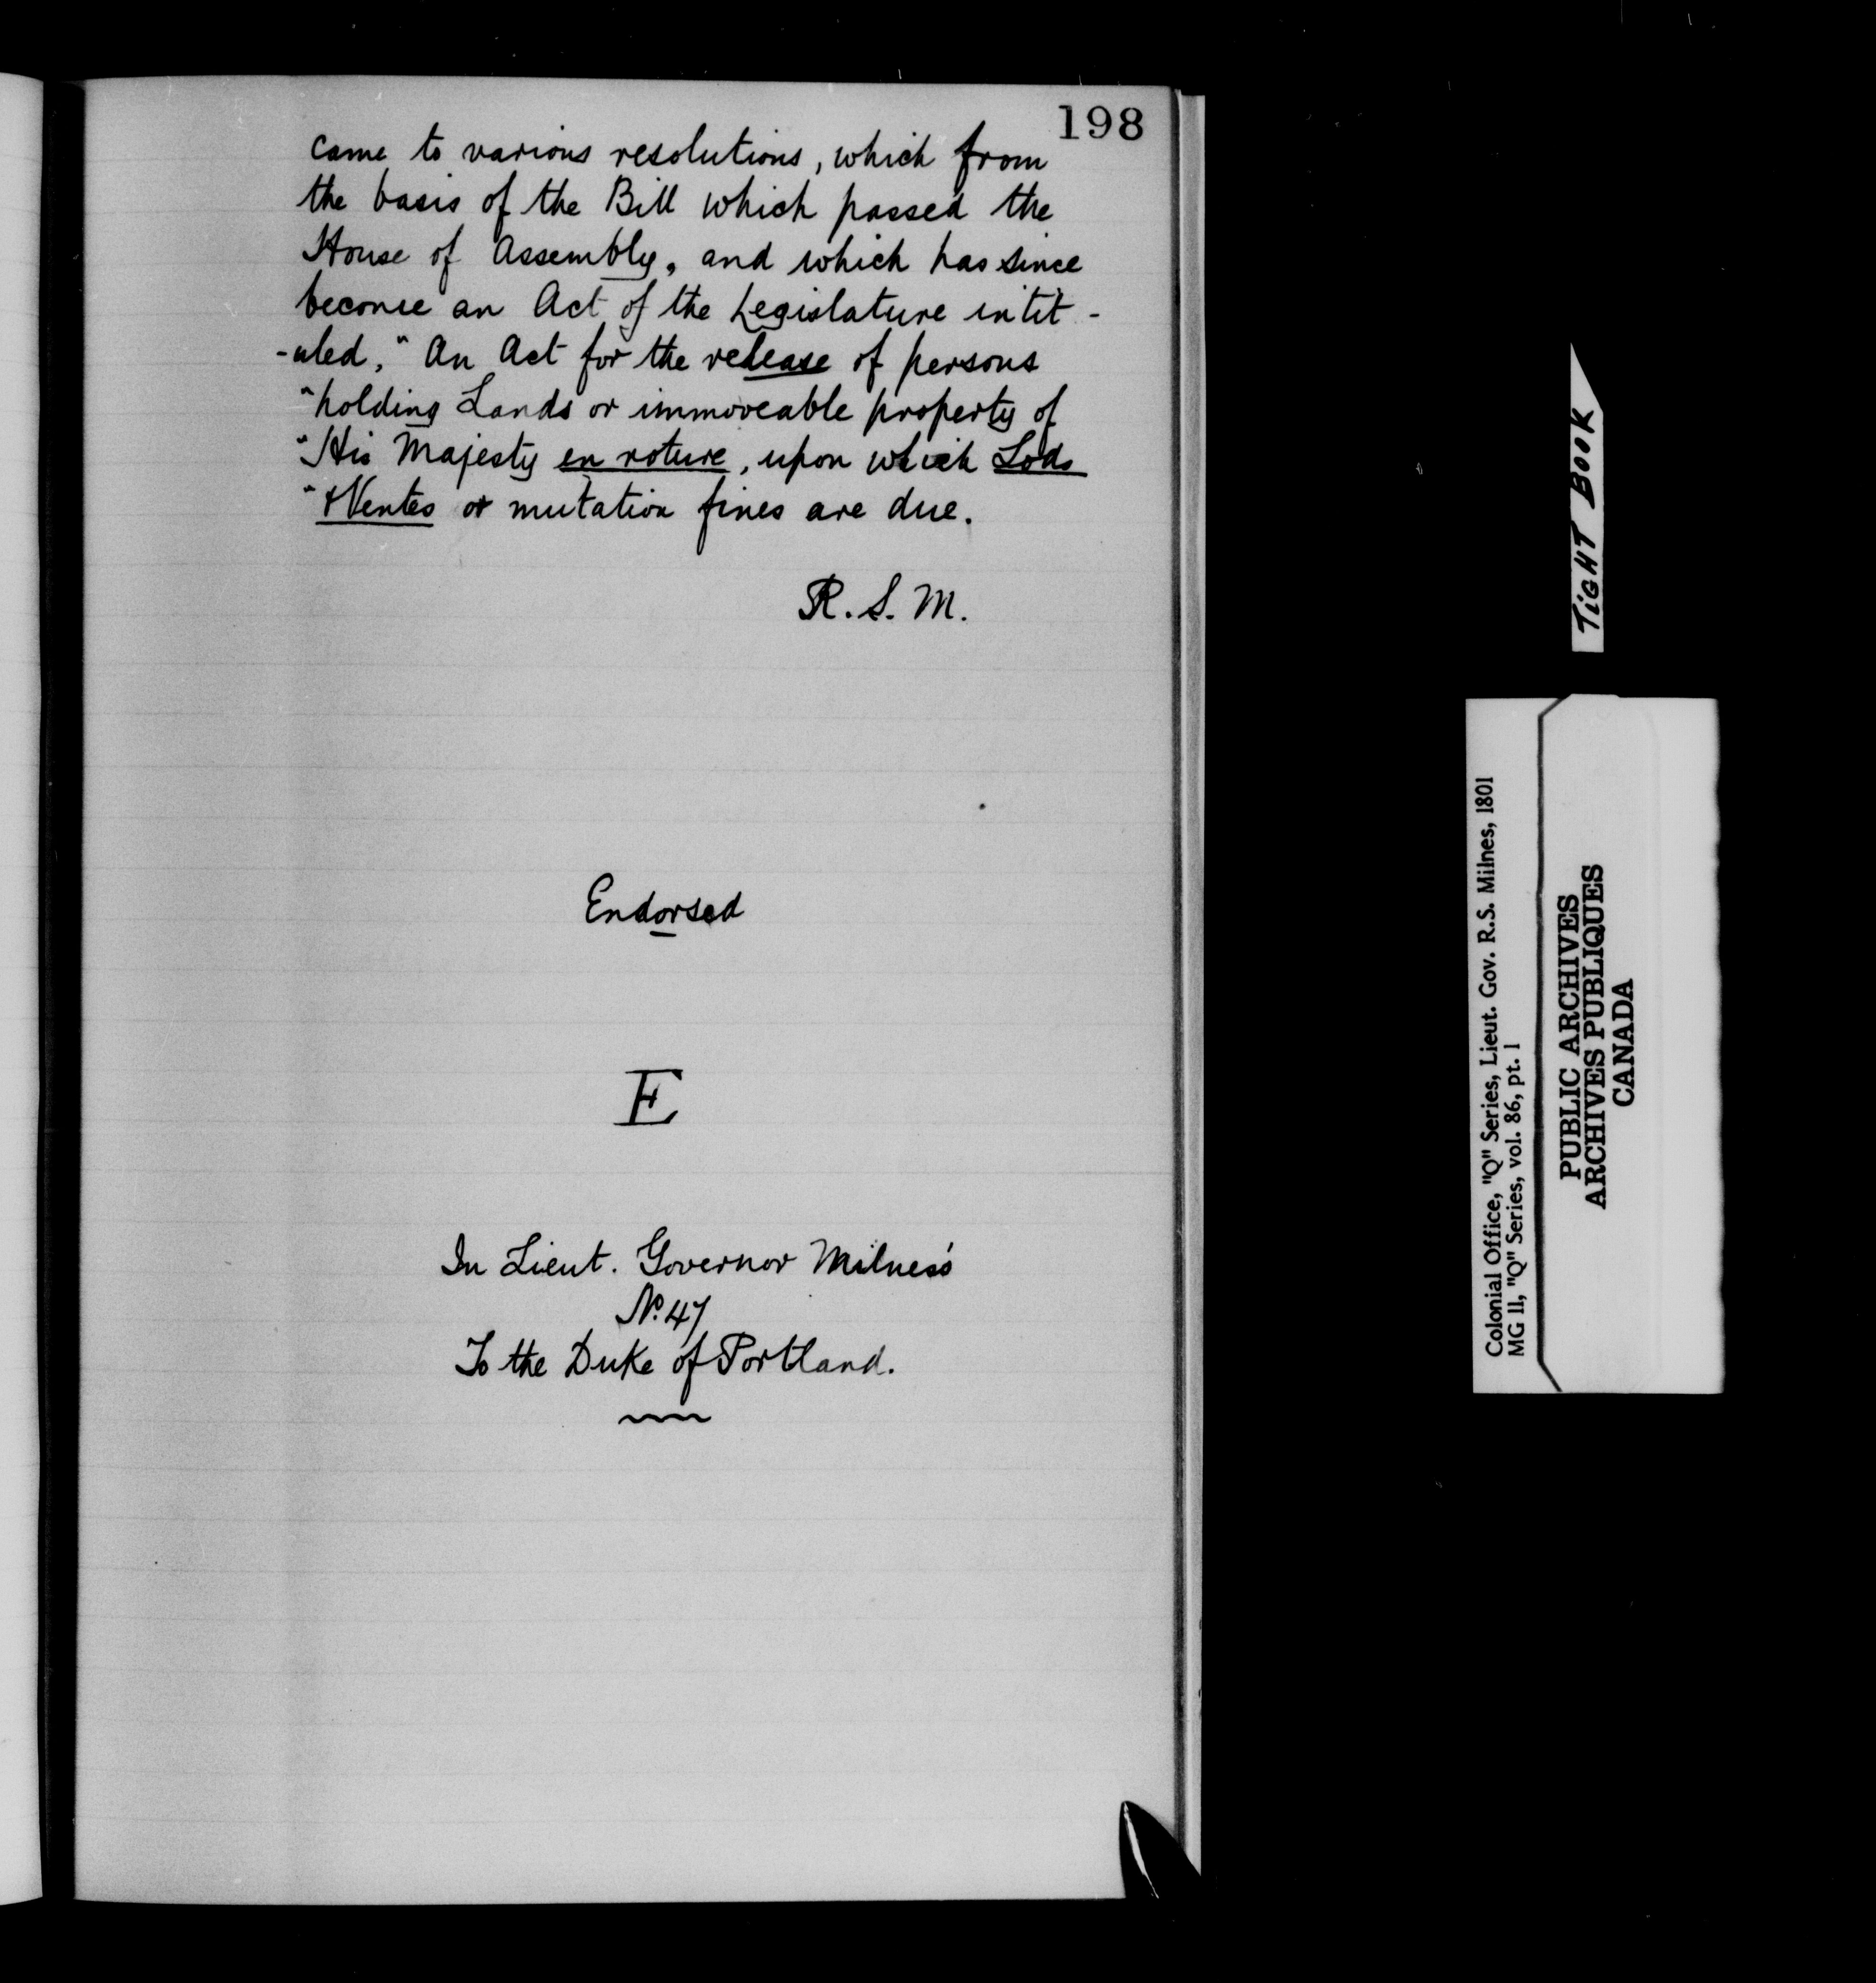 198
came to various resolutions, which from
the basis of the Bill which passed the
House of Assembly, and which has since
become an Act of the Legislature intit-
-uled, "An Act for the release of persons
"holding Lands or immoveable property of
"His Majesty en roture, upon which Lods
"& Ventes or mutation fines are due.
R. S. M.
Endorsed
E
In Lieut. Governor Milnes's
No. 47
To the Duke of Portland.
TIGHT BOOK
Colonial Office, "Q" Series, Lieut. Gov. R.S. Milnes, 1801
MG 11, "Q" Series, vol. 86, pt. 1
PUBLIC ARCHIVES
ARCHIVES PUBLIQUES
CANADA